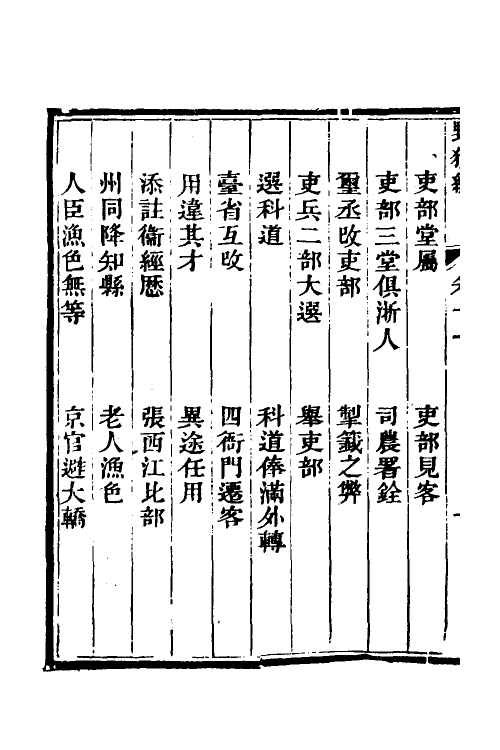 吏部堂屬　吏部見客
吏部三堂俱浙人　司農署銓
璽丞改吏部　掣籤之弊
吏兵二部大選　舉吏部
選科道　科道俸滿外轉
臺省互改　四衙門遷客
用違其才　異途任用
添註衞經歷　張西江比部
州同降知縣　老人漁色
人臣漁色無等　京官避大轎